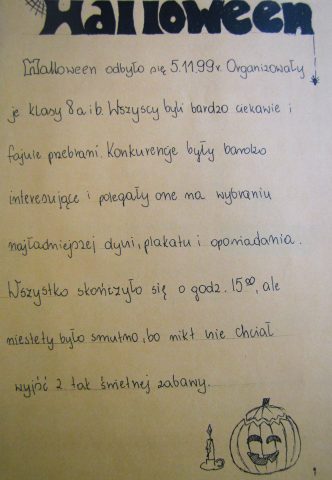 Halloween
Halloween odbyło się 5.11.99r. Organizowały
je klasy 8 a i b. Wszyscy byli bardzo ciekawie i
fajnie przebrani. Konkurencje były bardzo
interesujące i polegały one na wybraniu
najładniejszej dyni, plakatu i opowiadania.
Wszystko skończyło się o godz. 15⁰⁰, ale
niestety było smutno, bo nikt nie chciał
wyjść z tak świetnej zabawy.
1